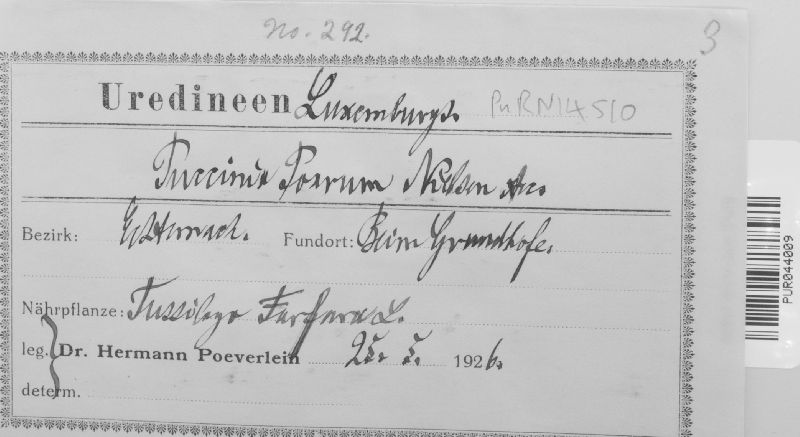 No. 292.
3
Uredineen Luxemburgs.
PuRN14510
Puccinia Poarum Nielsen
Bezirk: Echternach. Fundort: Beim Grundhofe.
Nährpflanze: Tussilago Farfara L.
leg. Dr. Hermann Poeverlein 25. 5. 1926.
determ.
PUR044009